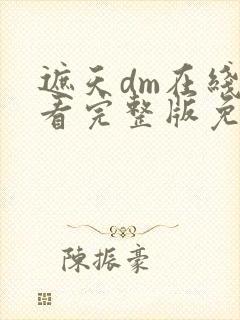 遮天dm在线
看完整版免
陳振豪